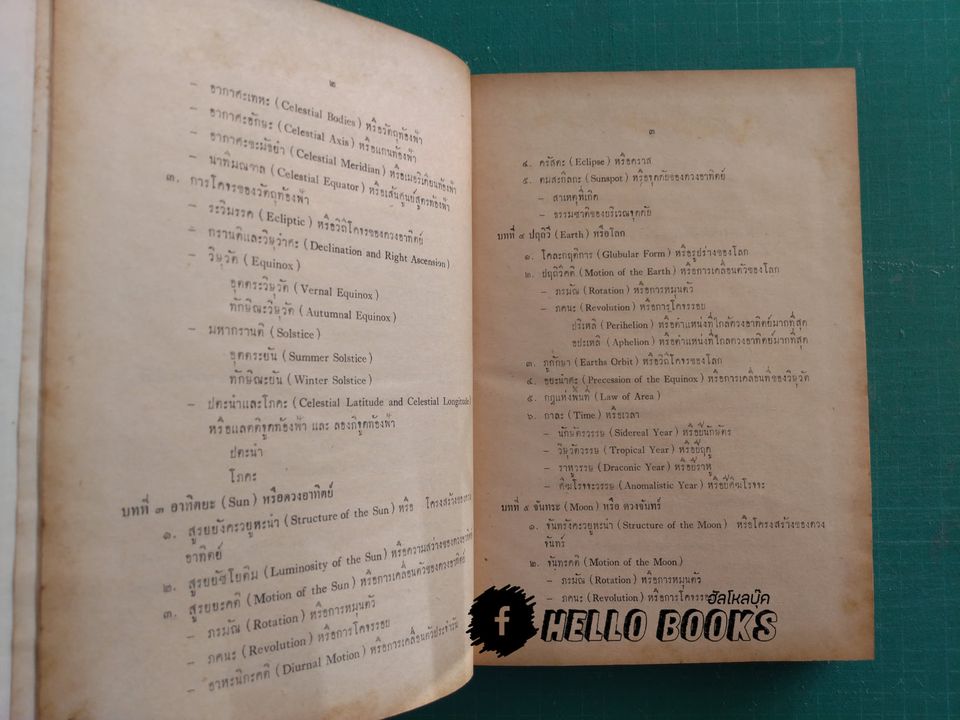 ๒
– อากาศะเทหะ (Celestial Bodies) หรือวัตถุท้องฟ้า
– อากาศะอักษะ (Celestial Axis) หรือแกนท้องฟ้า
– อากาศะชะมัธยา (Celestial Meridian) หรือเมอริเดียนท้องฟ้า
– นาทิมณฑล (Celestial Equator) หรือเส้นศูนย์สูตรท้องฟ้า
๓. การโคจรของวัตถุท้องฟ้า
– ระวิมรรค (Ecliptic) หรือวิถีโคจรของดวงอาทิตย์
– กรานติและวิษุวำศะ (Declination and Right Ascension)
– วิษุวัต (Equinox)
อุตตระวิษุวัต (Vernal Equinox)
ทักษิณะวิษุวัต (Autumnal Equinox)
– มหากรานติ (Solstice)
อุตตระยัน (Summer Solstice)
ทักษิณะยัน (Winter Solstice)
– ปตะนำและโภคะ (Celestial Latitude and Celestial Longitude)
หรือแลตติจูดท้องฟ้า และ ลองกิจูดท้องฟ้า
ปตะนำ
โภคะ
บทที่ ๓ อาทิตยะ (Sun) หรือดวงอาทิตย์
๑. สูรยยังควยูหะนำ (Structure of the Sun) หรือ โครงสร้างของดวง
อาทิตย์
๒. สูรยยัชโยติม (Luminosity of the Sun) หรือความสว่างของดวงอาทิตย์
๓. สูรยยะคติ (Motion of the Sun) หรือการเคลื่อนตัวของดวงอาทิตย์
– ภรมัณ (Rotation) หรือการหมุนตัว
– ภคนะ (Revolution) หรือการโคจรรอบ
– อาหะนิกะคติ (Diurnal Motion) หรือการเคลื่อนตัวประจำวัน
๓
๔. ครัสตะ (Eclipse) หรือคราส
๕. ตมสะกีลกะ (Sunspot) หรือจุดดับของดวงอาทิตย์
– สาเหตุที่เกิด
– ธรรมชาติของบริเวณจุดดับ
บทที่ ๔ ปฤถิวี (Earth) หรือโลก
๑. โคละกฤติการ (Glubular Form) หรือรูปร่างของโลก
๒. ปฤถิวีคติ (Motion of the Earth) หรือการเคลื่อนตัวของโลก
– ภรมัณ (Rotation) หรือการหมุนตัว
– ภคนะ (Revolution) หรือการโคจรรอบ
ปริเหลิ (Perihelion) หรือตำแหน่งที่ใกล้ดวงอาทิตย์มากที่สุด
อปะเหลิ (Aphelion) หรือตำแหน่งที่ไกลดวงอาทิตย์มากที่สุด
๓. ภูกักษา (Earths Orbit) หรือวิถีโคจรของโลก
๔. อยะนำศะ (Precession of the Equinox) หรือการเคลื่อนที่ของวิษุวัต
๕. กฎแห่งพื้นที่ (Law of Area)
๖. กาละ (Time) หรือเวลา
– นักษัตรวรรษ (Sidereal Year) หรือปีนักษัตร
– วิษุวัตวรรษ (Tropical Year) หรือปีฤดู
– ราหูวรรษ (Draconic Year) หรือปีราหู
– ศีฆโรจจะวรรษ (Anomalistic Year) หรือปีศีฆโรจจะ
บทที่ ๕ จันทระ (Moon) หรือ ดวงจันทร์
๑. จันทรังควยูหะนำ (Structure of the Moon) หรือโครงสร้างของดวง
จันทร์
๒. จันทรคติ (Motion of the Moon)
– ภรมัณ (Rotation) หรือการหมุนตัว
– ภคนะ (Revolution) หรือการโคจรรอบ
ฮัลโหลบุ๊ค
f HELLO BOOKS